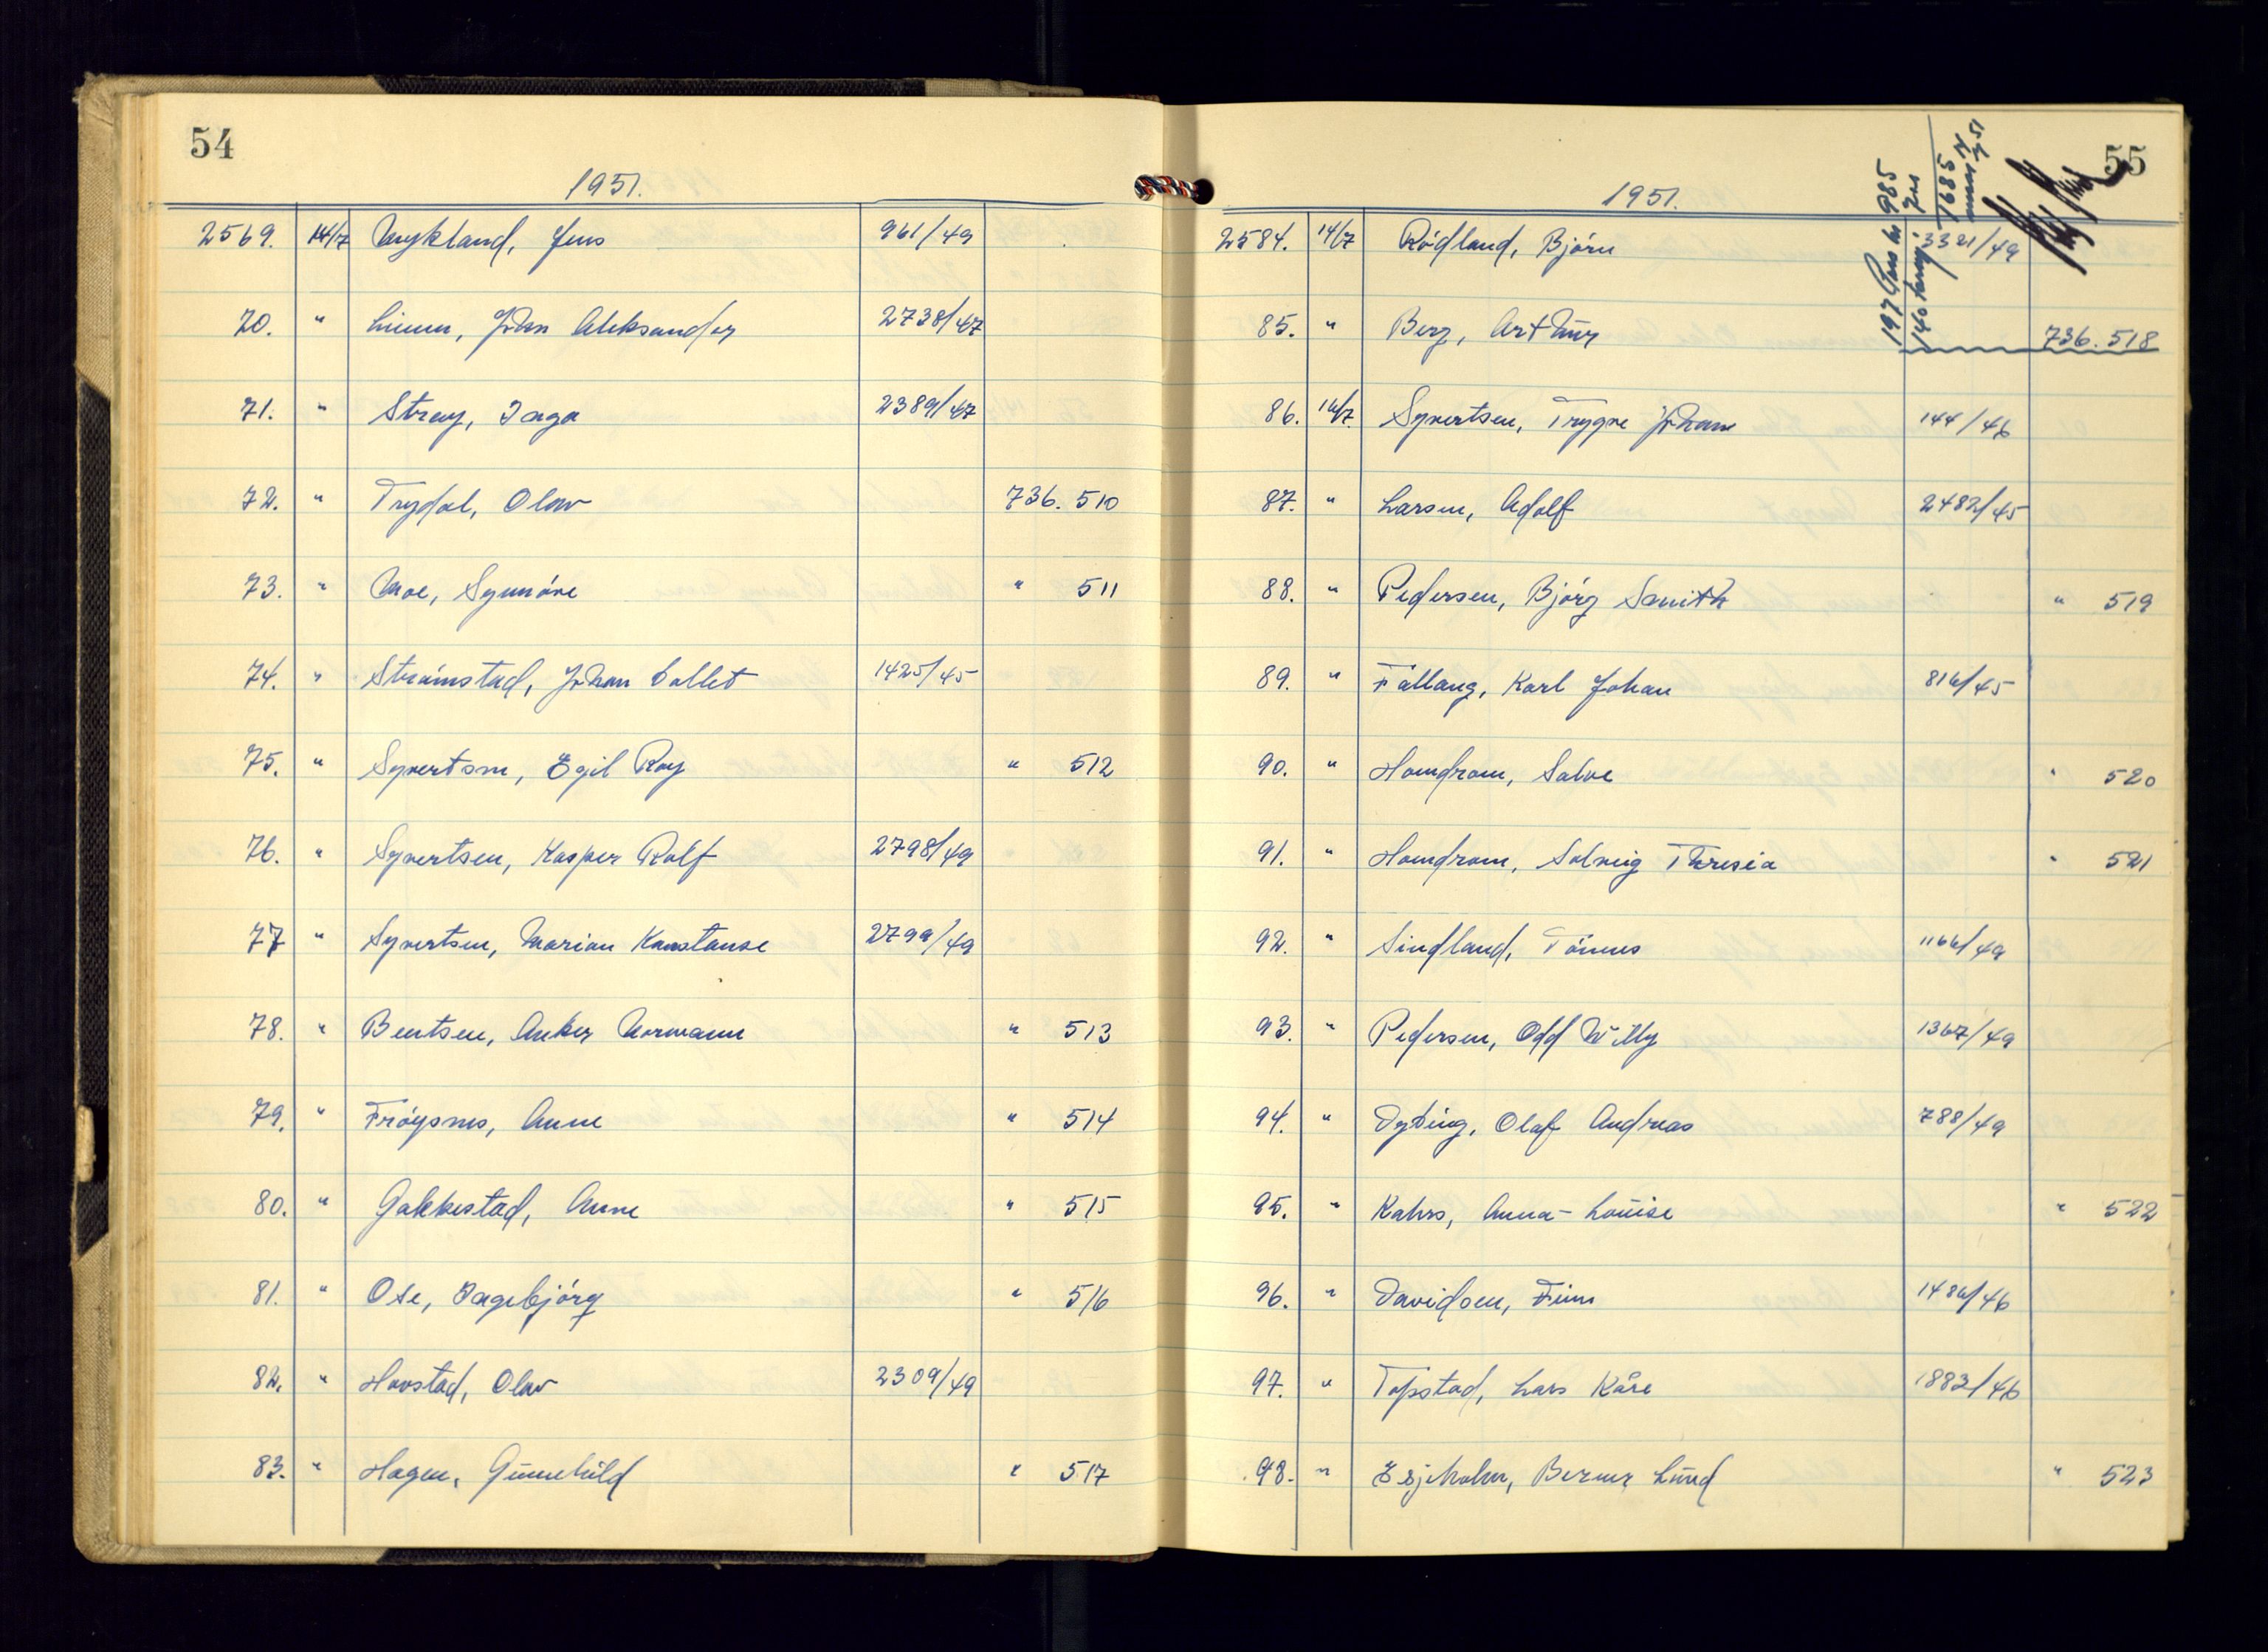 54
1951.
2569. 14/7 Mykland, Jens 961/49
70. " Linum, Johan Aleksander 2738/47
71. " Stray, Inga 2389/47
72. " Trydal, Olav 736.510
73. " Moe, Synnöve " 511
74. " Strömstad, Johan Collet 1425/45
75. " Syvertsen, Egil Roy " 512
76. " Syvertsen, Kasper Rolf 2798/49
77 " Syvertsen, Marion Konstanse 2799/49
78. " Bentsen, Anker Normann " 513
79. " Fröysnes, Anne " 514
80. " Gakkestad, Anne " 515
81. " Ose, Ingebjörg " 516
82. " Hovstad, Olav 2309/49
83. " Hagen, Gunnhild " 517
55
1951.
197 985
140 1685
2584. 14/7 Rödland, Björn 3321/49
85. " Berg, Arthur 736.518
86. 16/7 Syvertsen, Trygve Johan 144/46
87. " Larsen, Adolf 2482/45
88. " Pedersen, Björg Smith " 519
89. " Fållang, Karl Johan 816/45
90. " Homdrom, Salve " 520
91. " Homdrom, Solveig Theresia " 521
92. " Sindland, Tönnes 1166/49
93. " Pedersen, Odd Willy 1367/49
94. " Dybing, Olaf Andreas 788/49
95. " Kahrs, Anna-Louise " 522
96. " Davidsen, Finn 1486/46
97. " Topstad, Lars Kåre 1882/46
98. " Esjeholm, Berner Lund " 523